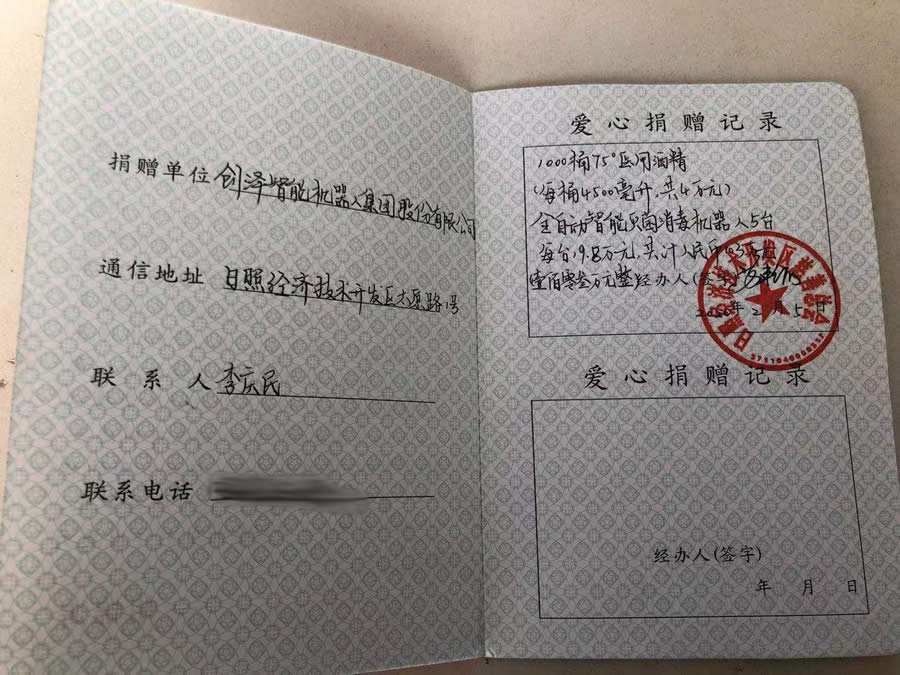 捐赠单位 创泽智能机器人集团股份有限公司
通信地址 日照经济技术开发区太原路1号
联系人 李庆民
联系电话
爱心捐赠记录
1000桶75°医用酒精
(每桶4500毫升,共4万元)
全自动智能灭菌消毒机器人5台
每台19.8万元,共计人民币103万元
壹佰零叁万元整 经办人(签字)
2020年2月5日
日照经济技术开发区慈善总会
爱心捐赠记录
经办人(签字)
年 月 日